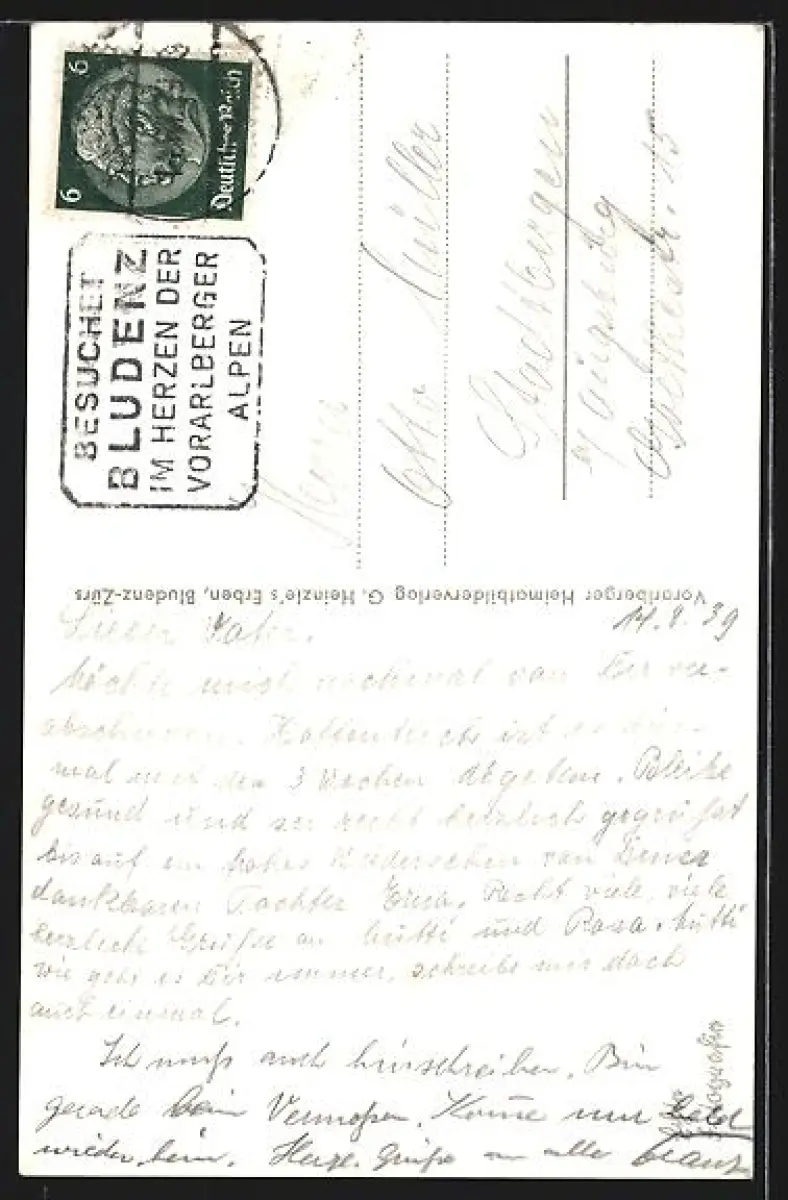 6 6
Deutsches Reich
BESUCHET
BLUDENZ
IM HERZEN DER
VORARLBERGER
ALPEN
Herrn
Otto Müller
Stadtbergen
b/ Augsburg
15
Vorarlberger Heimatbilderverlag G. Heinzle's Erben, Bludenz-Zürs
14.8.39
Lieber Vater.
Möchte mich nochmal von Dir ver-
abschieden. Hoffentlich ist es
mal mit den 3 Wochen abgetan. Bleibe
gesund und sei recht herzlich gegrüßt
bis auf ein frohes Wiedersehen von Deiner
dankbaren Tochter Erna. Recht viele, viele
herzliche Grüße an Mutti und Rosa. Mutti
wie geht es Dir immer, schreibe mir doch
auch einmal.
Ich muß auch hinschreiben. Bin
gerade beim. Komme nun bald
wieder heim. Herzl. Grüße an alle
Echte
Fotografie